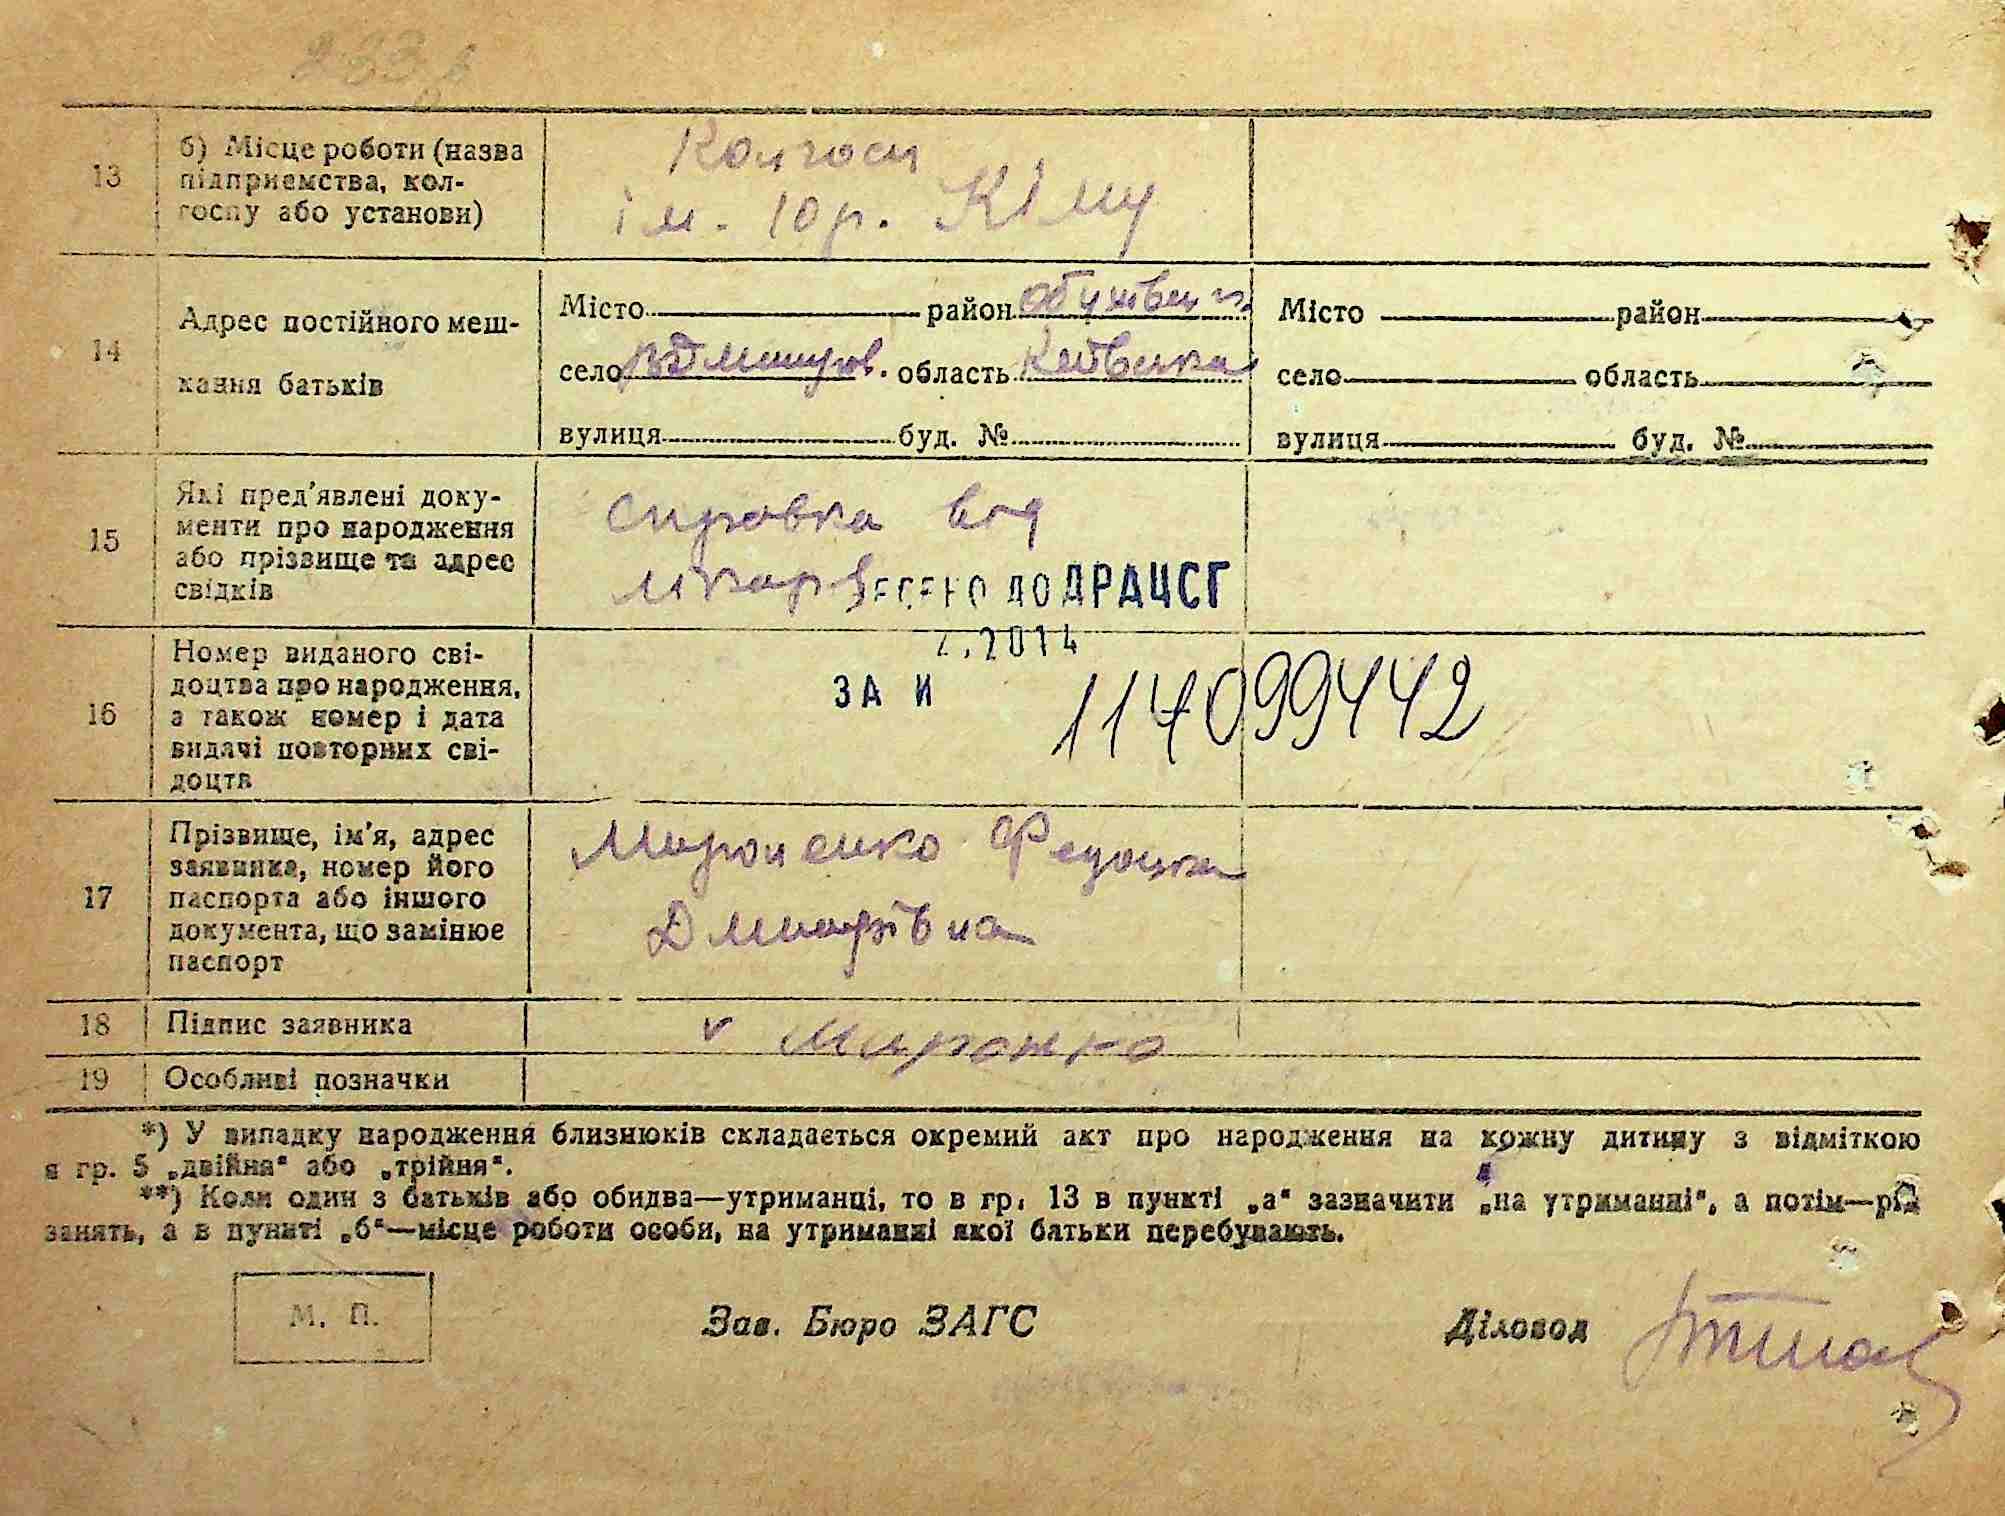 13
б) Місце роботи (назва
підприємства, кол-
госпу або установи)
Колгосп
ім. 10 р. КІМу
14
Адрес постійного меш-
кання батьків
Місто район Обухівськ.
село область Київська
вулиця буд. №
Місто район
село область
вулиця буд. №
15
Які пред'явлені доку-
менти про народження
або прізвище та адрес
свідків
Справка від
лікаря
ЕСЕНО ДО ДРАЦСГ
.2014
ЗА И
1140994 42
16
Номер виданого сві-
доцтва про народження,
а також номер і дата
видачі повторних сві-
доцтв
17
Прізвище, ім'я, адрес
заявника, номер його
паспорта або іншого
документа, що замінює
паспорт
Мироненко Федоска
Дмитрівна
18
Підпис заявника
v
19
Особливі позначки
*) У випадку народження близнюків складається окремий акт про народження на кожну дитину з відміткою
в гр. 5 „двійня" або „трійня".
**) Коли один з батьків або обидва—утриманці, то в гр. 13 в пункті „а" зазначити „на утриманні", а потім—рід
занять, а в пункті „б"—місце роботи особи, на утриманні якої батьки перебувають.
М. П.
Зав. Бюро ЗАГС
Діловод